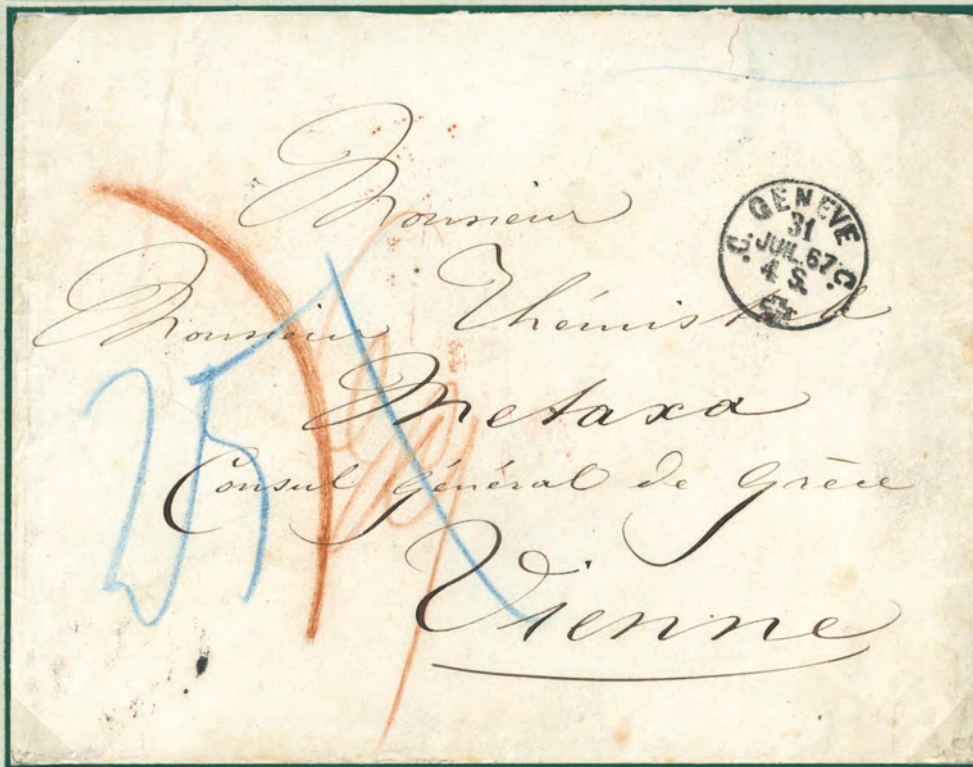 Monsieur
Monsieur Thémistocle
Metaxa
Consul Général de Grèce
Vienne
GENEVE
31
JUIL. 67
4 S.
C. C.
25